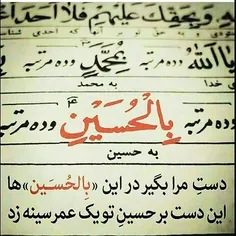 وَ بِحَقِّكَ عَلَيْهِمْ فَلا اَحَدَ اَعْ
یا اَللّٰهُ وده مرتبه بِمُحَمَّدٍ وده مرتبه
خدا به محمد
مرتبه بِالْحُسَيْنِ وده مرتبه
به حسین
دستِ مرا بگیر در این «بِالحُسَین» ها
این دست بر حسینِ تو یک عمر سینه زد